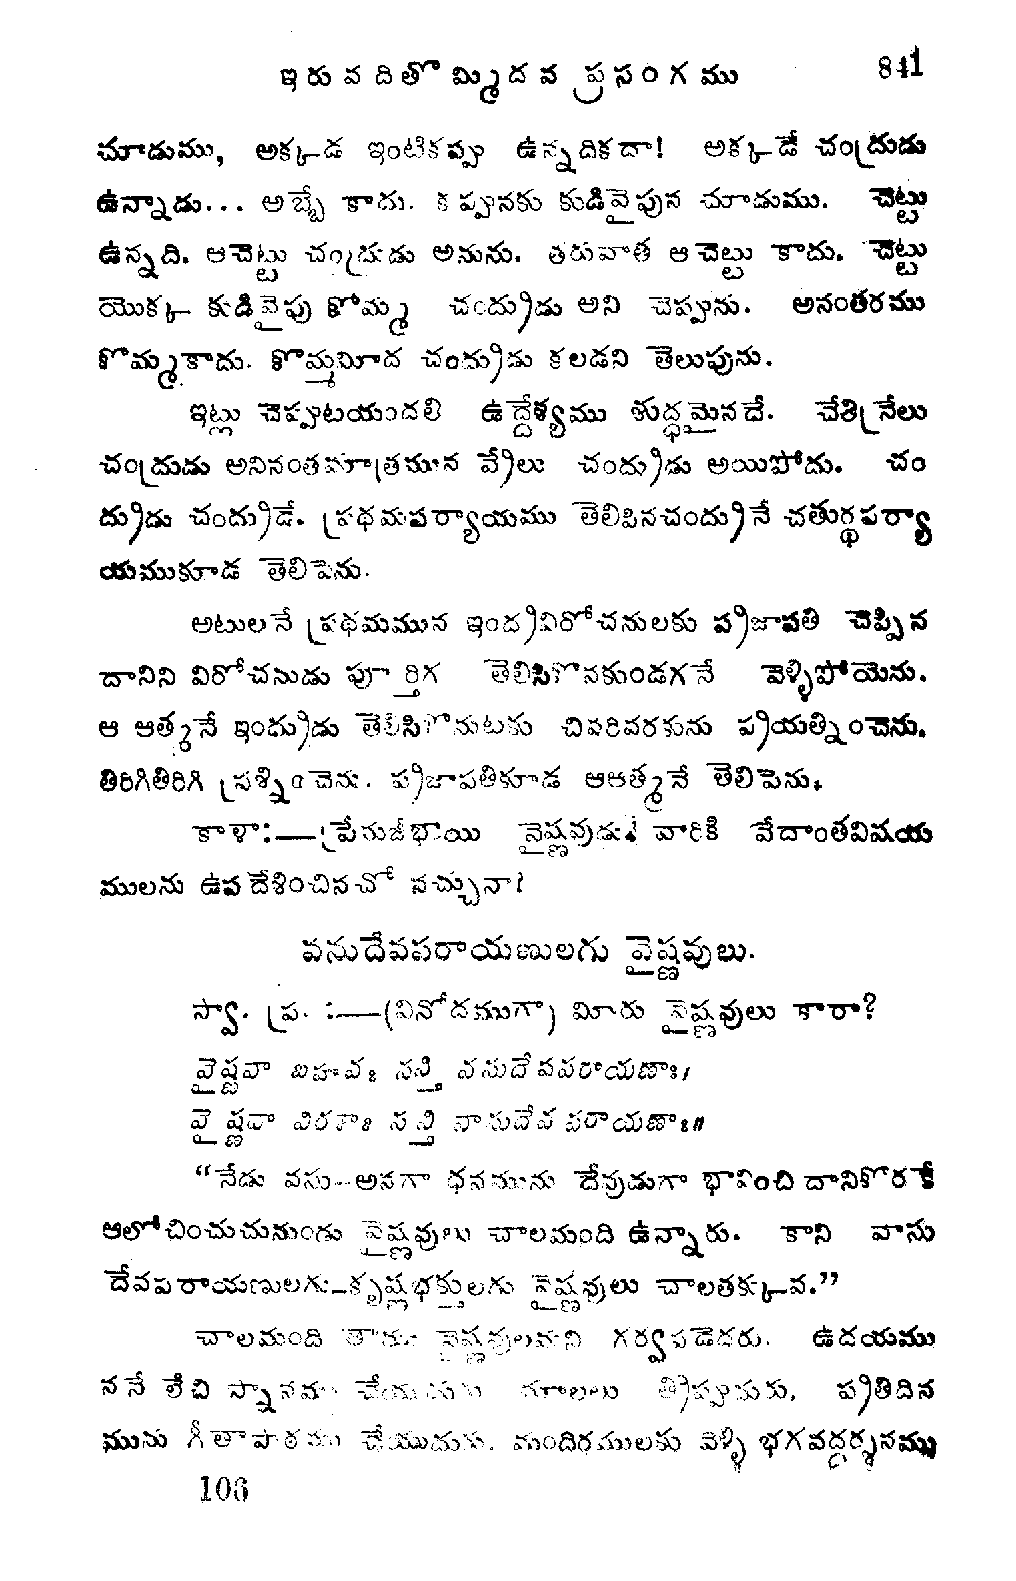 ఇరువదితొమ్మిదవ ప్రసంగము 841
చూడుము, అక్కడ ఇంటికప్పు ఉన్నదికదా! అక్కడే చంద్రుడు
ఉన్నాడు... అబ్బే కాదు. కప్పునకు కుడివైపున చూడుము. చెట్టు
ఉన్నది. ఆచెట్టు చంద్రుడు అనును. తరువాత ఆ చెట్టు కాదు, చెట్టు
యొక్క కుడివైపు కొమ్మ చంద్రుడు అని చెప్పును. అనంతరము
కొమ్మకాదు. కొమ్మమీద చంద్రుడు కలడని తెలుపును.
ఇట్లు చెప్పుటయందలి ఉద్దేశ్యము శుద్ధమైనదే. చేతివ్రేలు
చంద్రుడు అనినంతమాత్రమున వ్రేలు చంద్రుడు అయిపోదు. చం
ద్రుడు చంద్రుడే. ప్రథమపర్యాయము తెలిపినచంద్రునే చతుర్థపర్యా
యముకూడ తెలిపెను.
అటులనే ప్రథమమున ఇంద్రవిరోచనులకు ప్రజాపతి చెప్పిన
దానిని విరోచనుడు పూర్తిగ తెలిసికొనకుండగనే వెళ్ళిపోయెను.
ఆ ఆత్మనే ఇంద్రుడు తెలిసికొనుటకు చివరివరకును ప్రయత్నించెను.
తిరిగితిరిగి ప్రశ్నించెను. ప్రజాపతికూడ ఆఆత్మనే తెలిపెను.
కాళా:—ప్రేమజీభాయి వైష్ణవుడు! వారికి వేదాంతవిషయ
ములను ఉపదేశించినచో నచ్చునా?
వసుదేవపరాయణులగు వైష్ణవులు.
స్వా. ప్ర. :—(వినోదముగా) మీరు వైష్ణవులు కారా?
వైష్ణవా బహవః సన్తి వసుదేవపరాయణాః।
వైష్ణవా విరళాః సన్తి వాసుదేవపరాయణాః॥
“నేడు వసు--అనగా ధనమును దేవుడుగా భావించి దానికొరకే
ఆలోచించుచునుండు వైష్ణవులు చాలమంది ఉన్నారు. కాని వాసు
దేవపరాయణులగు-కృష్ణభక్తులగు వైష్ణవులు చాలతక్కువ.”
చాలమంది తాము వైష్ణవులమని గర్వపడెదరు. ఉదయము
ననే లేచి స్నానము చేయుదురు మాలలు త్రిప్పుదురు, ప్రతిదిన
మును గీతాపాఠము చేయుదురు. మందిరములకు వెళ్ళి భగవద్దర్శనము
106